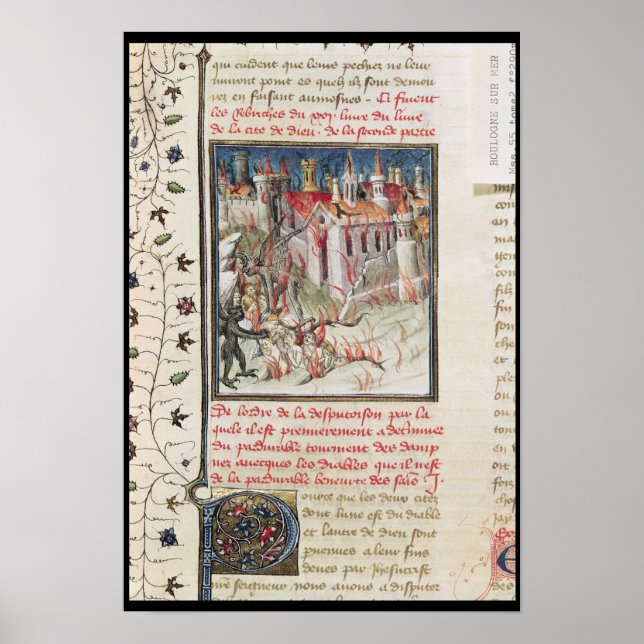 qui cuident que leurs pechiez ne leur
nuiront point es quelz ilz sont demou
rez en faisant aumosnes - Ci finent
les Rebriches du xxj. livre du livre
de la cite de dieu . de la seconde partie
De lordre de la desputoison par la
quele il est premierement a determiner
du pardurable tourment des damp
nez avecques les diables que il nest
de la pardurable beneurte des sains . j.
Pource que les deux citez
dont lune est du diable
et lautre de dieu sont
pruenues a leur fins
deues par Jhesucrist
nre seigneur nous avons a disputer
BOULOGNE SUR MER
Mss.55 tome2 f°290